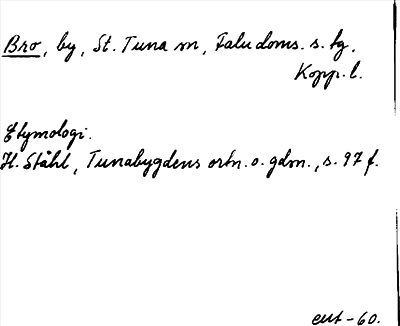 Bro, by, St. Tuna sn, Falu doms. s. tg,
Kopp. l.
Etymologi.
H. Ståhl, Tunabygdens ortn. o. gdn., s. 97 f.
eut-60.